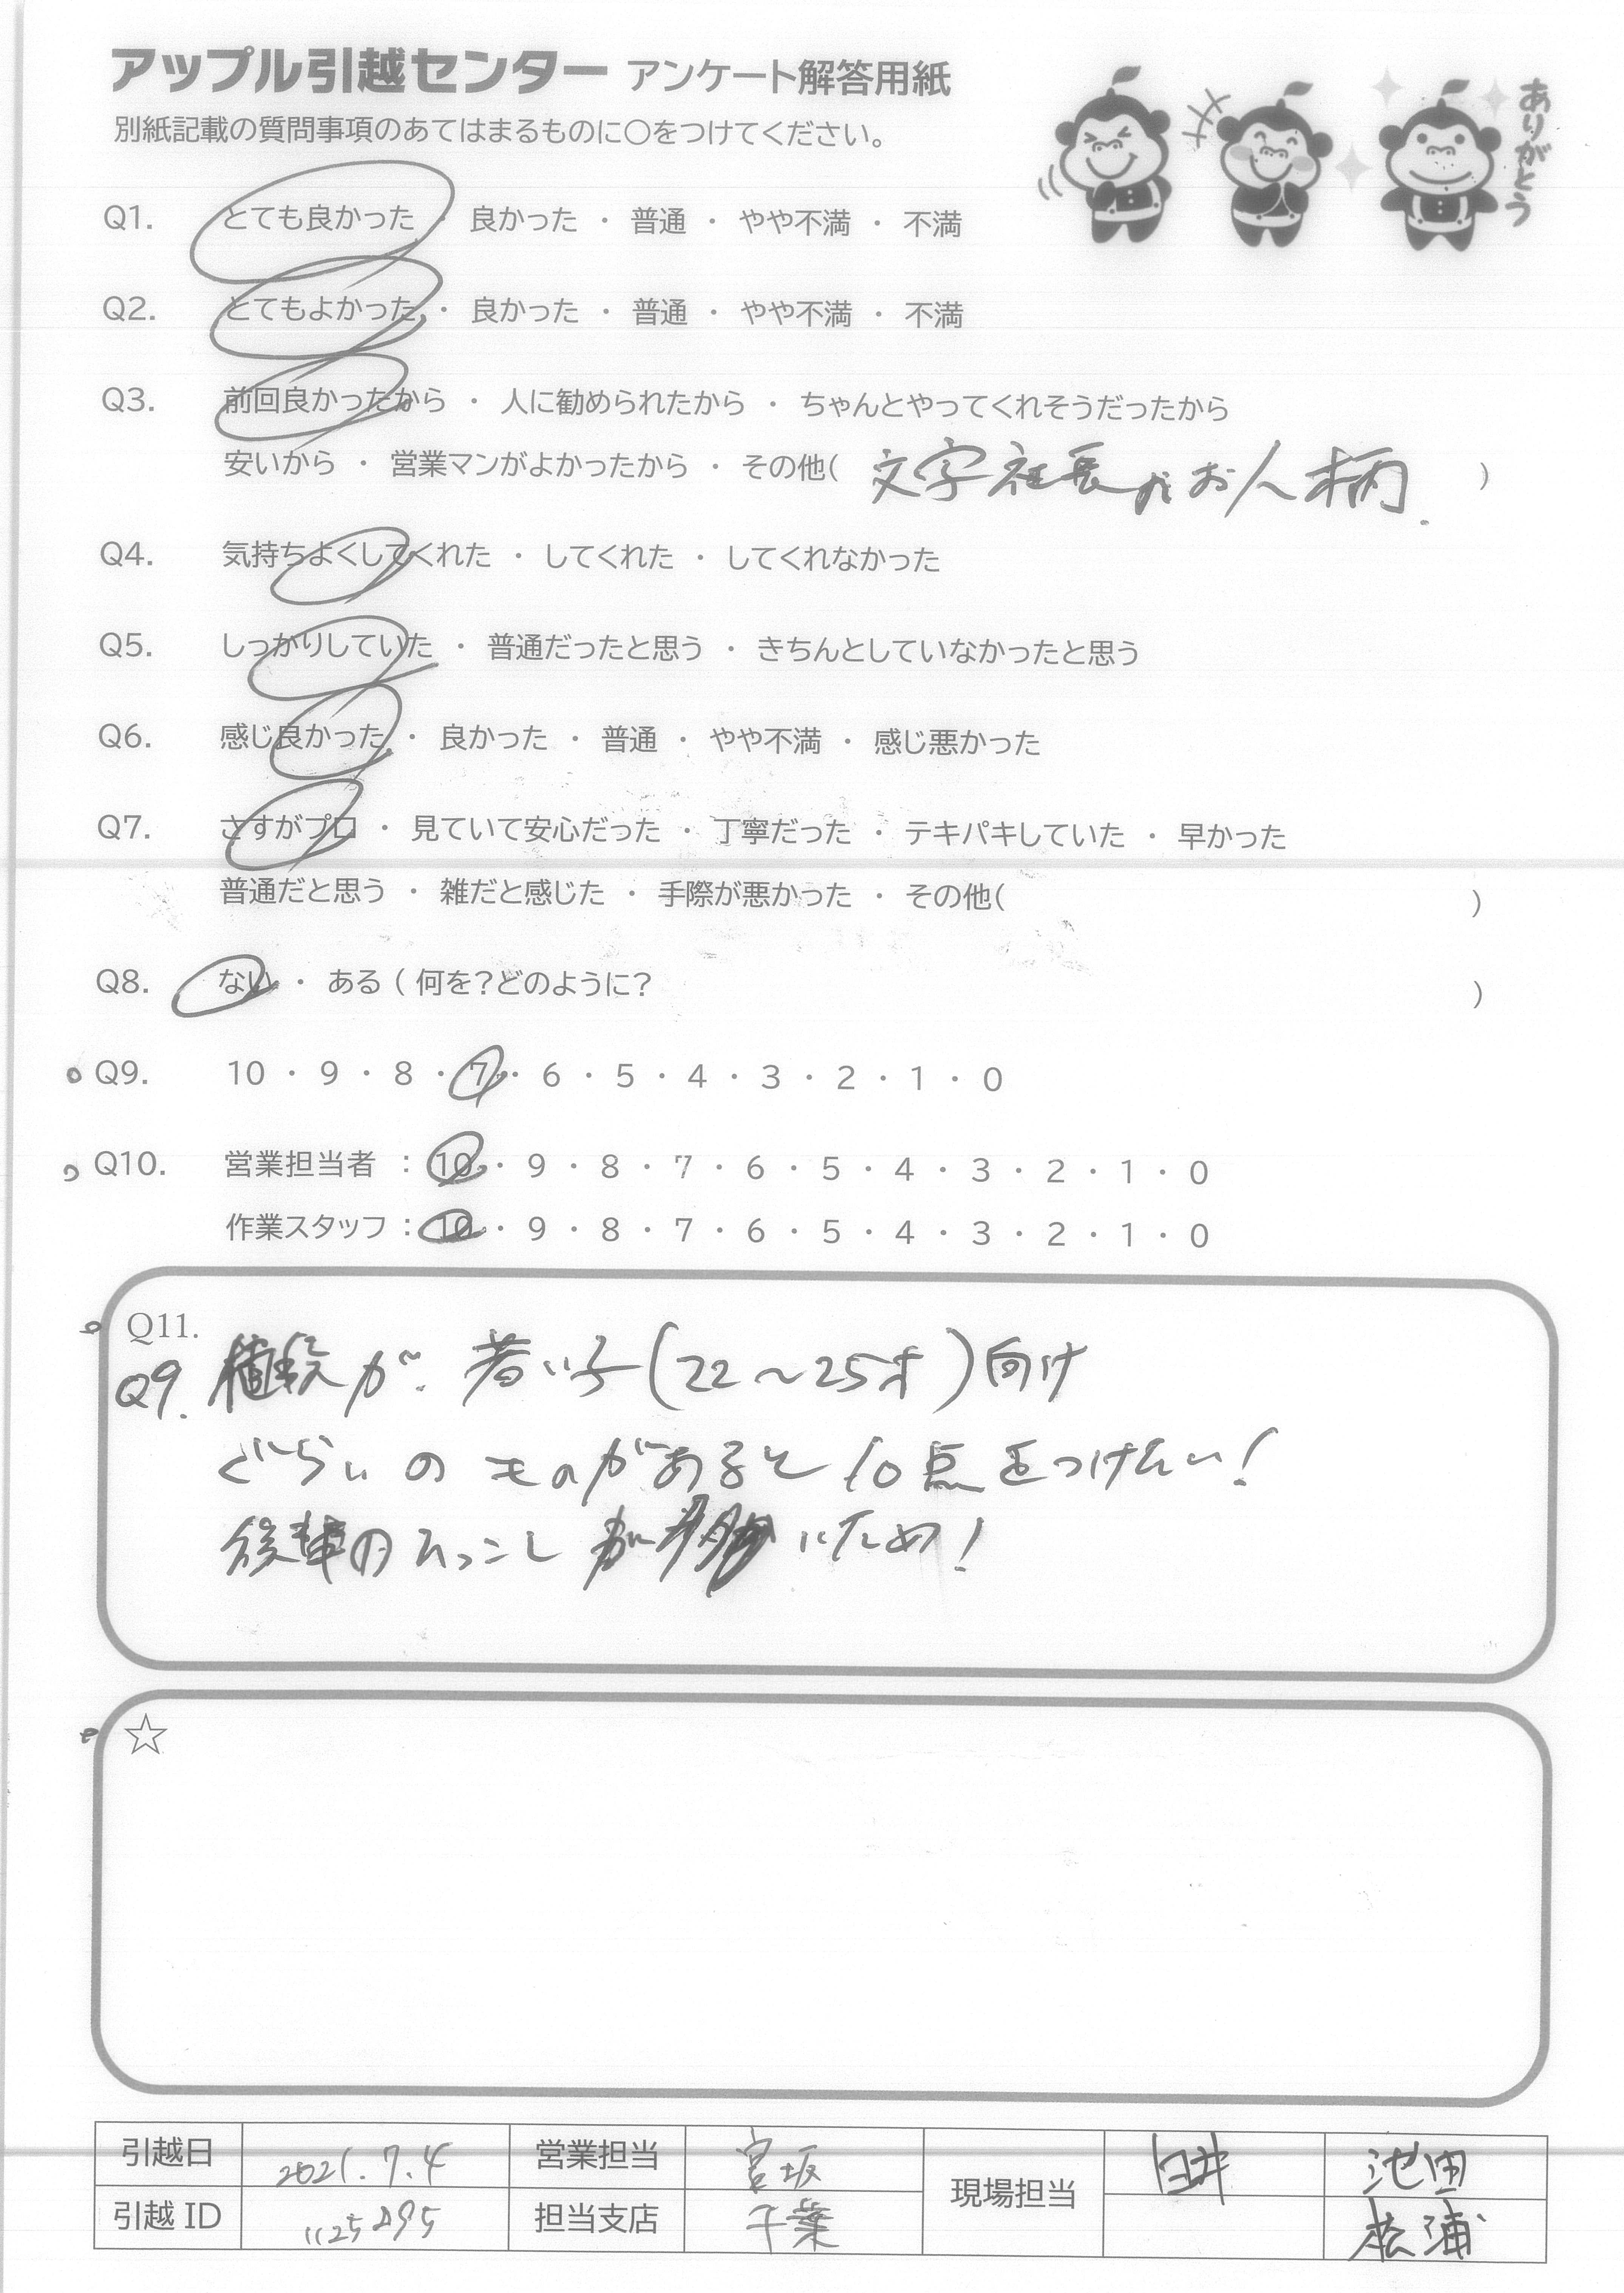 アップル引越センター アンケート解答用紙
別紙記載の質問事項のあてはまるものに○をつけてください。
ありがとう
Q1. とても良かった ・ 良かった ・ 普通 ・ やや不満 ・ 不満
Q2. とてもよかった ・ 良かった ・ 普通 ・ やや不満 ・ 不満
Q3. 前回良かったから ・ 人に勧められたから ・ ちゃんとやってくれそうだったから
安いから ・ 営業マンがよかったから ・ その他( 文字社長のお人柄. )
Q4. 気持ちよくしてくれた ・ してくれた ・ してくれなかった
Q5. しっかりしていた ・ 普通だったと思う ・ きちんとしていなかったと思う
Q6. 感じ良かった ・ 良かった ・ 普通 ・ やや不満 ・ 感じ悪かった
Q7. さすがプロ ・ 見ていて安心だった ・ 丁寧だった ・ テキパキしていた ・ 早かった
普通だと思う ・ 雑だと感じた ・ 手際が悪かった ・ その他( )
Q8. ない ・ ある ( 何を?どのように? )
Q9. 10 ・ 9 ・ 8 ・ 7 ・ 6 ・ 5 ・ 4 ・ 3 ・ 2 ・ 1 ・ 0
Q10. 営業担当者 : 10 ・ 9 ・ 8 ・ 7 ・ 6 ・ 5 ・ 4 ・ 3 ・ 2 ・ 1 ・ 0
作業スタッフ : 10 ・ 9 ・ 8 ・ 7 ・ 6 ・ 5 ・ 4 ・ 3 ・ 2 ・ 1 ・ 0
Q11.
Q9. が、若い子(22〜25才)向け
ぐらいの ものがあると 10点をつけたい!
後輩のひっこしが多いため!
☆
引越日 2021.7.4 営業担当 宮坂 現場担当 臼井 池田
引越ID 1125295 担当支店 千葉 松浦